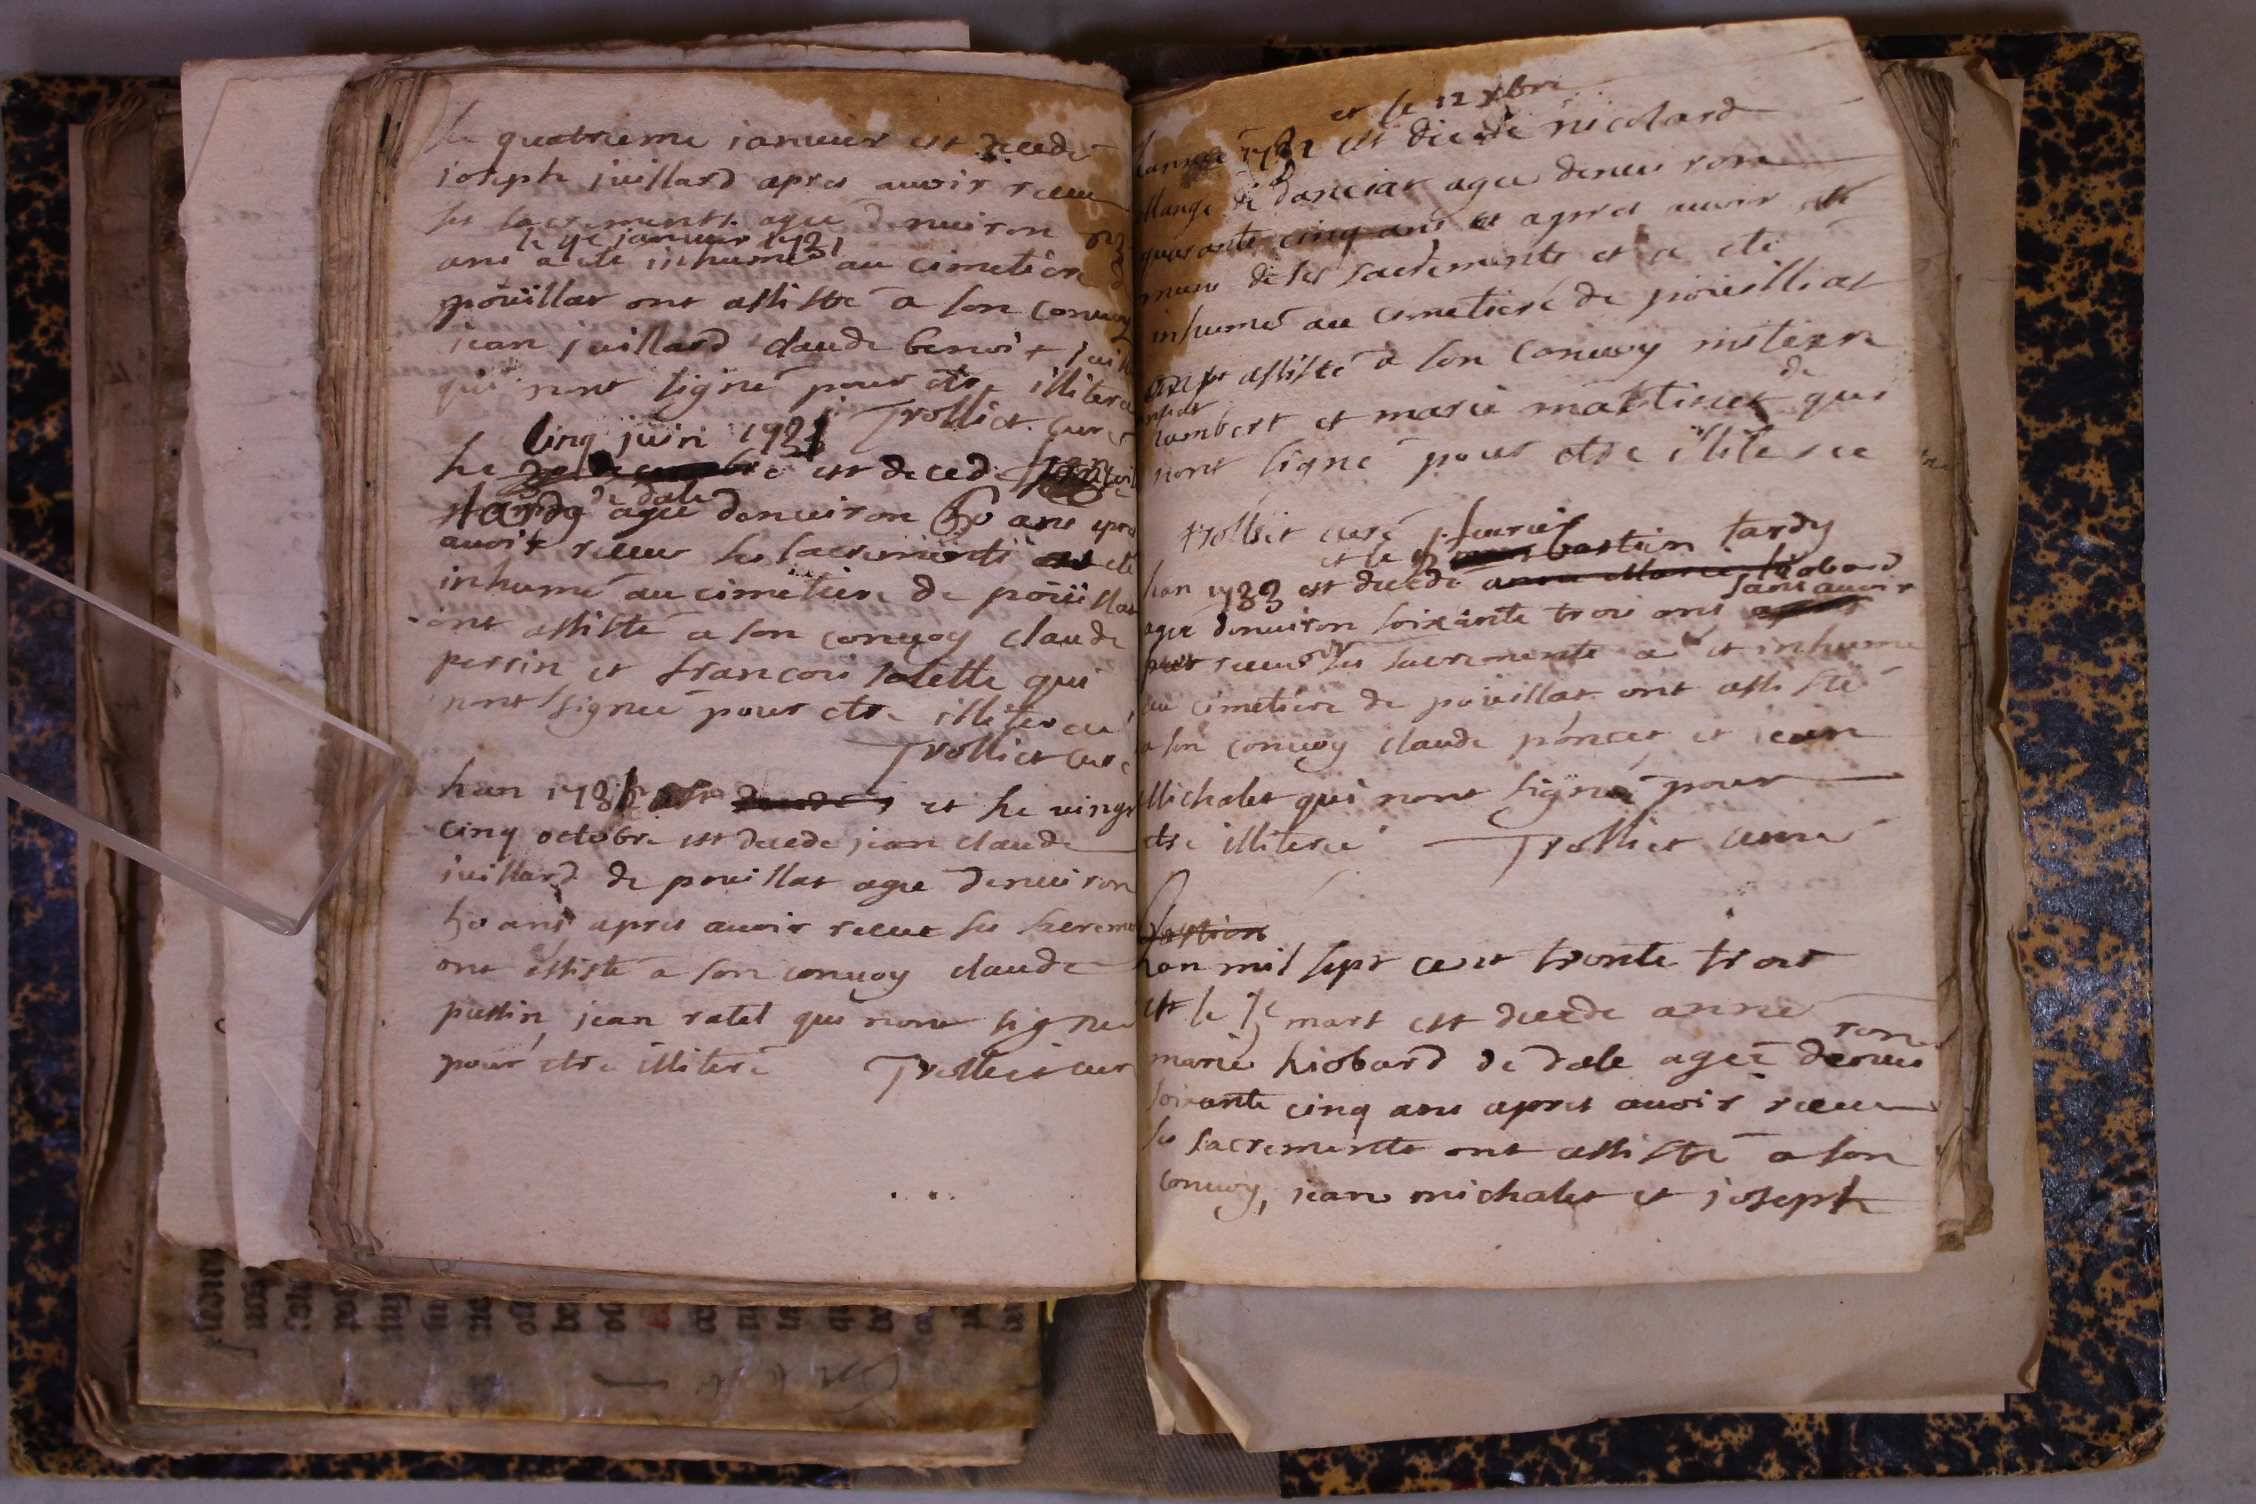 le quatrieme ianuier est decedé
ioseph juillard apres auoir receu
ses sacrements agee denuiron
le 4e januier 1731
ans a ete inhumé au cimetiere d
poüillat ont assisté a son conuoy
jean juillard claude benoit juill
qui nont signé pour etre illitere
Trolliet curé
cinq juin 1731
he est decedé
tardy de dale agee denuiron 60 ans apres
auoir receu ses sacrements ete
inhumé au cimetiere de poüillat
ont assisté a son conuoy claude
perrin et francois ratelle qui
nont signé pour etre illiteré
Trolliet curé
han 1731 et he vingt
cinq octobre est decede jean claude
juillard de pouillat agee denuiron
50 ans apres auoir receue ses sacreme
ont assisté a son conuoy claude
perrin jean ratel qui nont signe
pour etre illiteré Trolliet cur
et le 12 xbre
lannee 1732 est decedé nicolard
de danciat agee denui ron
quarante cinq ans et apres auoir ete
muni de ses sacrements et a eté
inhumé au cimetiere de poüilliat
assisté a son conuoy
lambert et marie martinet de qui
nont signé pour etre illiteree
trolliet curé
et le feurier bastien tardy
han 1733 est decede anne marie hiobard
agee denuiron soixante trois ans sans auoir
receu ses sacrements a et inhume
au cimetiere de poüillat ont assisté
a son conuoy claude poncet et jean
Michalet qui nont signé pour
etre illiteré Trolliet curé
bastien
han mil sept cent trente trois
et le 7e mars est decede anne
marie hiobard de dale agee denui ron
soixante cinq ans apres auoir receu
ses sacrements ont assisté a son
conuoy, jean michalet et joseph